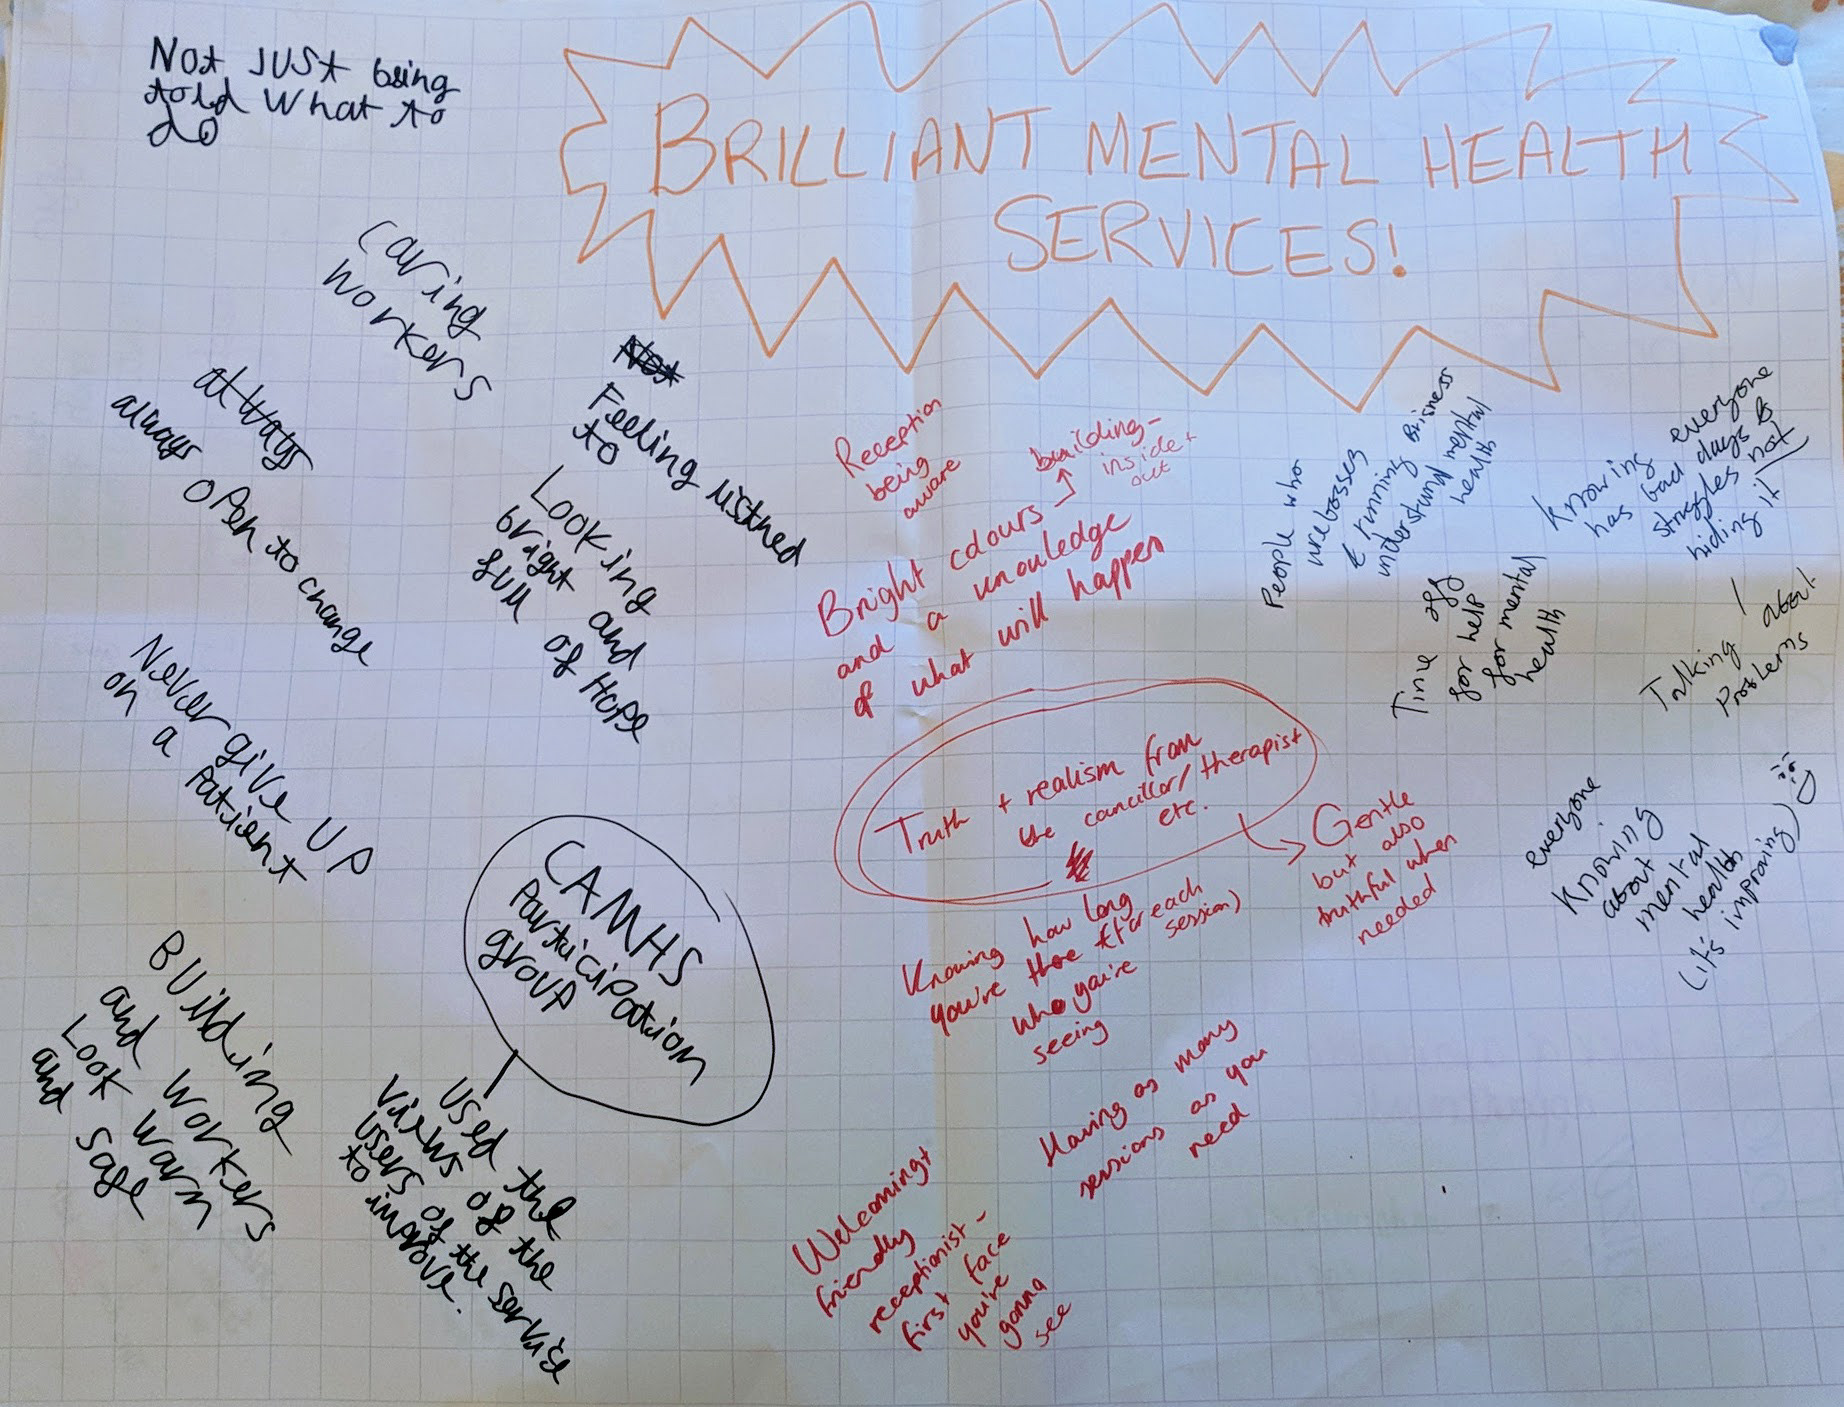 BRILLIANT MENTAL HEALTH
SERVICES!
Not JUST being
told What to
do
Caring
Workers
always
always open to change
Not
Feeling listned
to
Looking
bright and
full of Hope
Never give UP
on a Patient
CAMHS
Participation
group
Used the
Views of the
Users of the service
to improve.
BUilding
and workers
Look warm
and safe
Reception
being
aware
building -
inside +
out
Bright colours
and a knowledge
of what will happen
Truth + realism from
the councillor/therapist
etc.
Gentle
but also
truthful when
needed
Knowing how long
you're there (for each
session)
who you're
seeing
Having as many
sessions as you
need
Welcoming +
friendly
receptionist -
first face
you're
gonna
see
People who
are bosses
& running Business
understand mental
health
Time off
for help
for mental
health
Knowing everyone
has bad days &
struggles not
hiding it
Talking about
Problems
everyone
Knowing
about
mental
health
(it's improving)